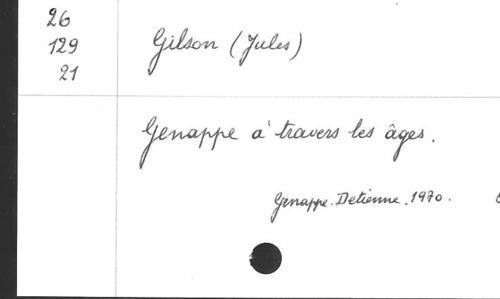 26
129
21
Gilson (Jules)
Genappe à travers les âges.
Genappe. Detienne. 1970.